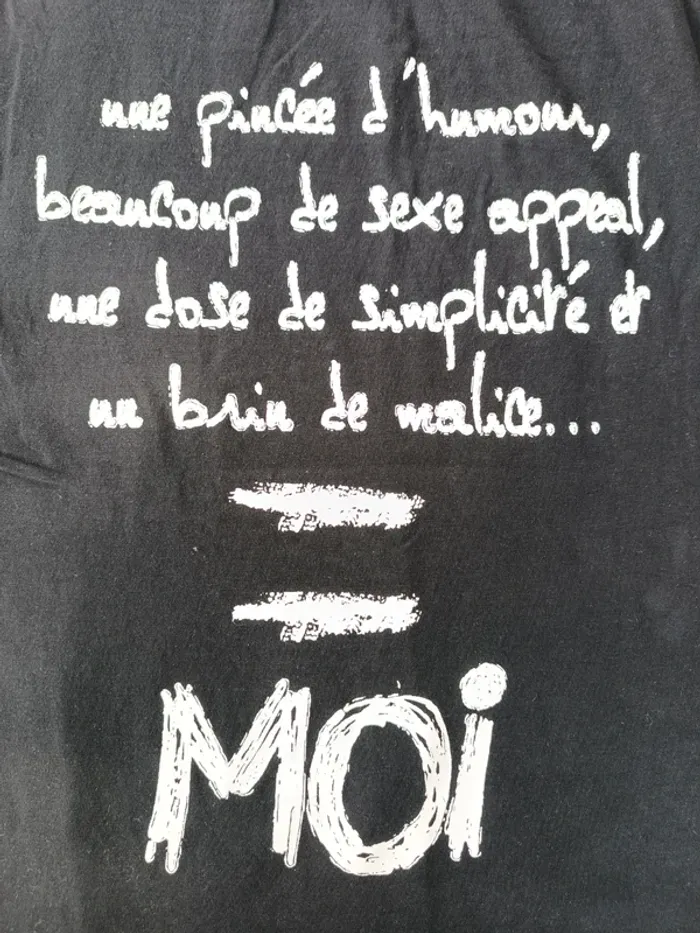 une pincée d'humour,
beaucoup de sexe appeal,
une dose de simplicité et
un brin de malice...
=
MOi